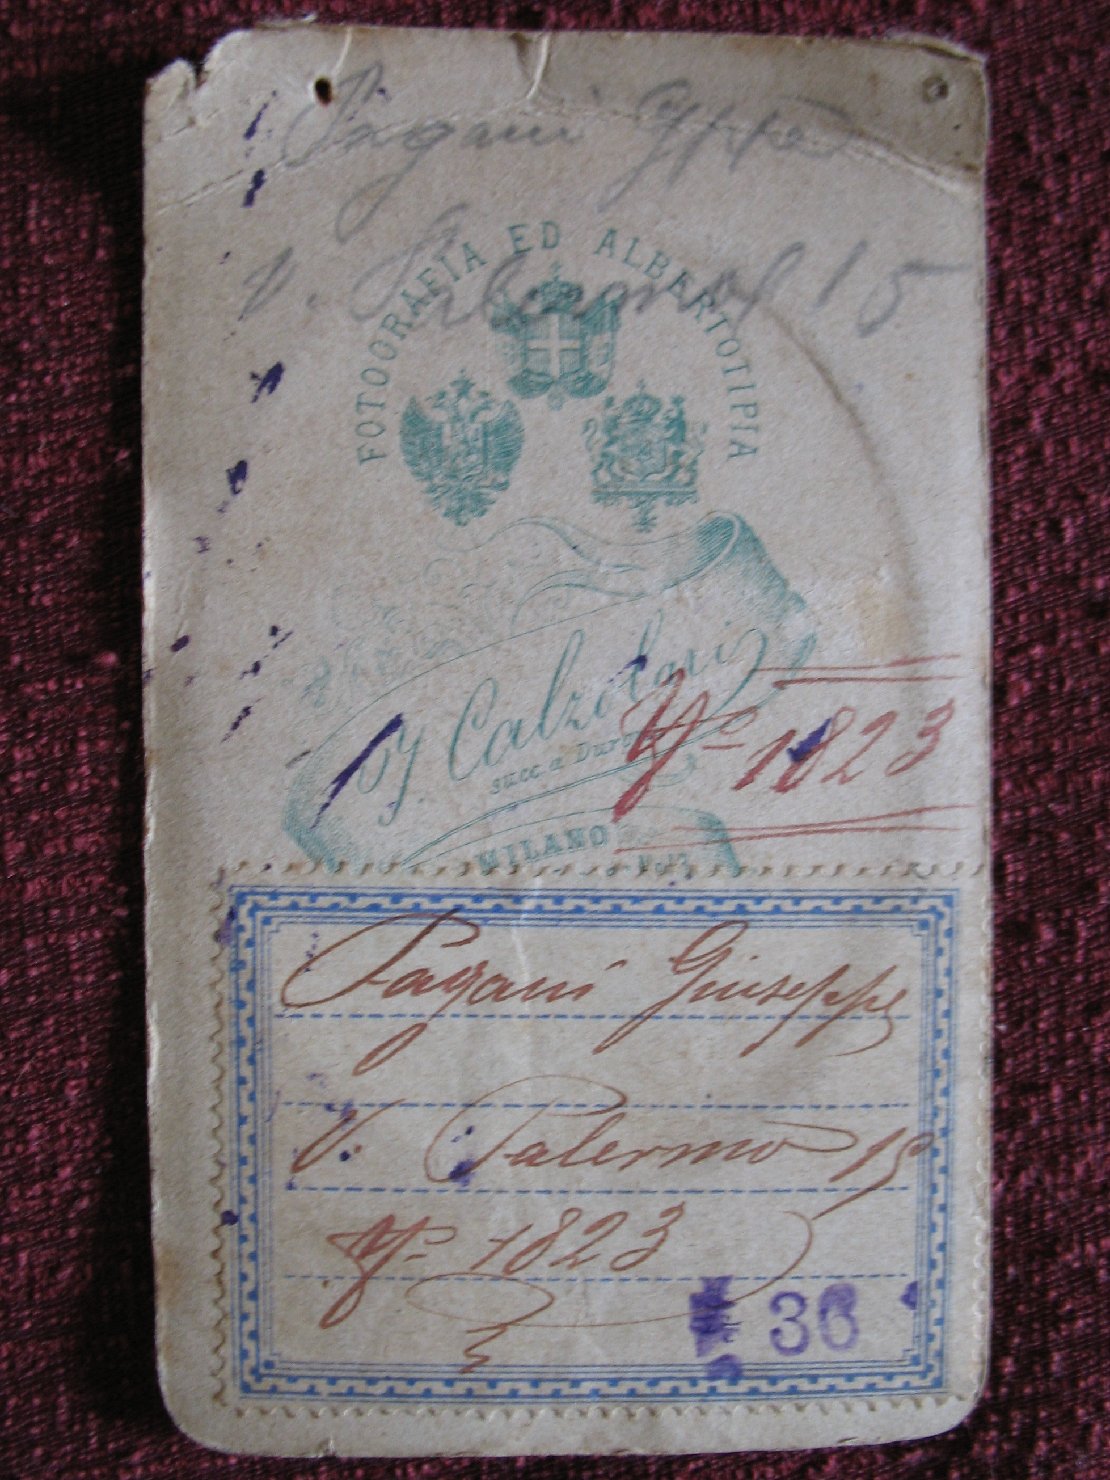 Pagani Gppe
V. Palermo 15
FOTOGRAFIA ED ALBERTOTIPIA
Calzolari
succ. a
Nº 1823
MILANO
Pagani Giuseppe
V. Palermo 15
Nº 1823
36